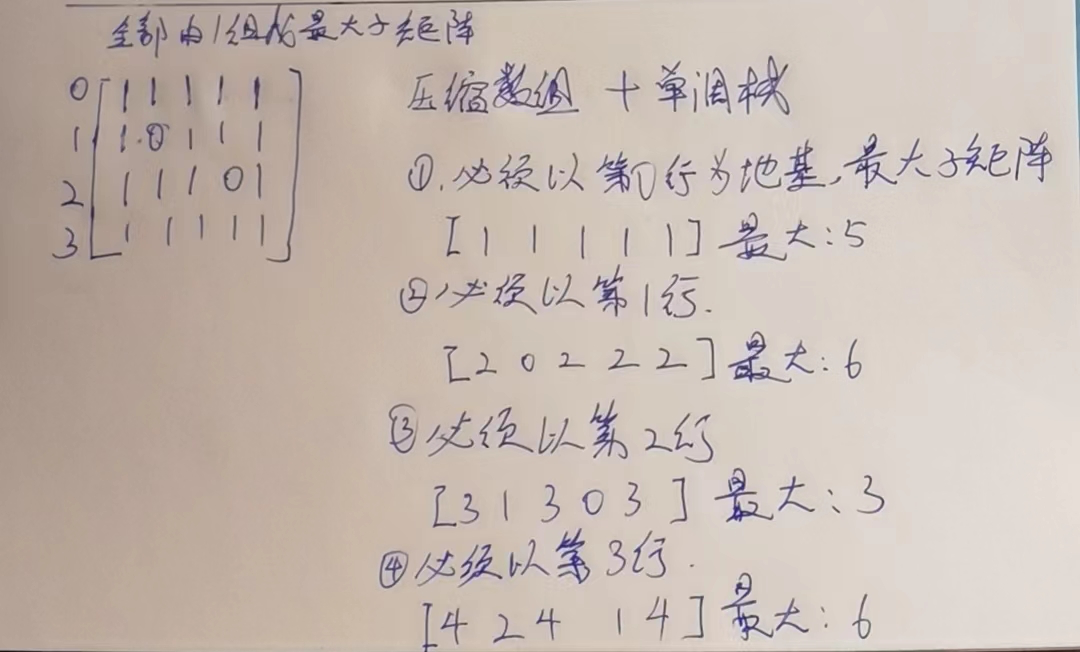 全部由1组成最大子矩阵
0 1 1 1 1 1
1 1 0 1 1 1
2 1 1 1 0 1
3 1 1 1 1 1
压缩数组 + 单调栈
①.必须以第0行为地基,最大子矩阵
[1 1 1 1 1] 最大:5
②必须以第1行.
[2 0 2 2 2] 最大:6
③必须以第2行
[3 1 3 0 3] 最大:3
④必须以第3行.
[4 2 4 1 4] 最大:6